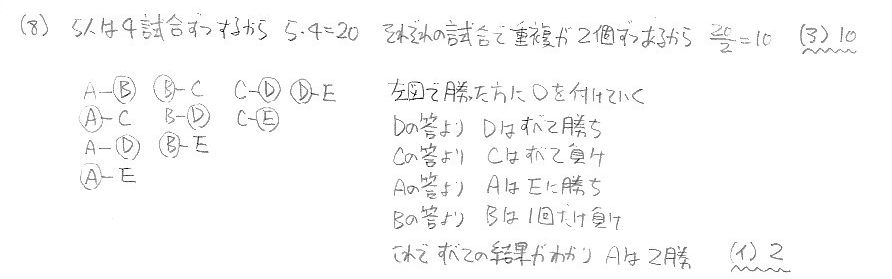 (8) 5人は4試合ずつするから 5・4=20 それぞれの試合で重複が2個ずつあるから 20/2=10 (ヲ) 10
A-Ⓑ Ⓑ-C C-Ⓓ Ⓓ-E 左図で勝った方に○を付けていく
Ⓐ-C B-Ⓓ C-Ⓔ Dの答より Dはすべて勝ち
A-Ⓓ Ⓑ-E Cの答より Cはすべて負け
Ⓐ-E Aの答より AはEに勝ち
Bの答より Bは1回だけ負け
これですべての結果がわかり Aは2勝 (イ) 2